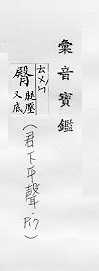 彙音寶鑑
ㄊㄨㄣˊ
臀
又底
(君下平聲